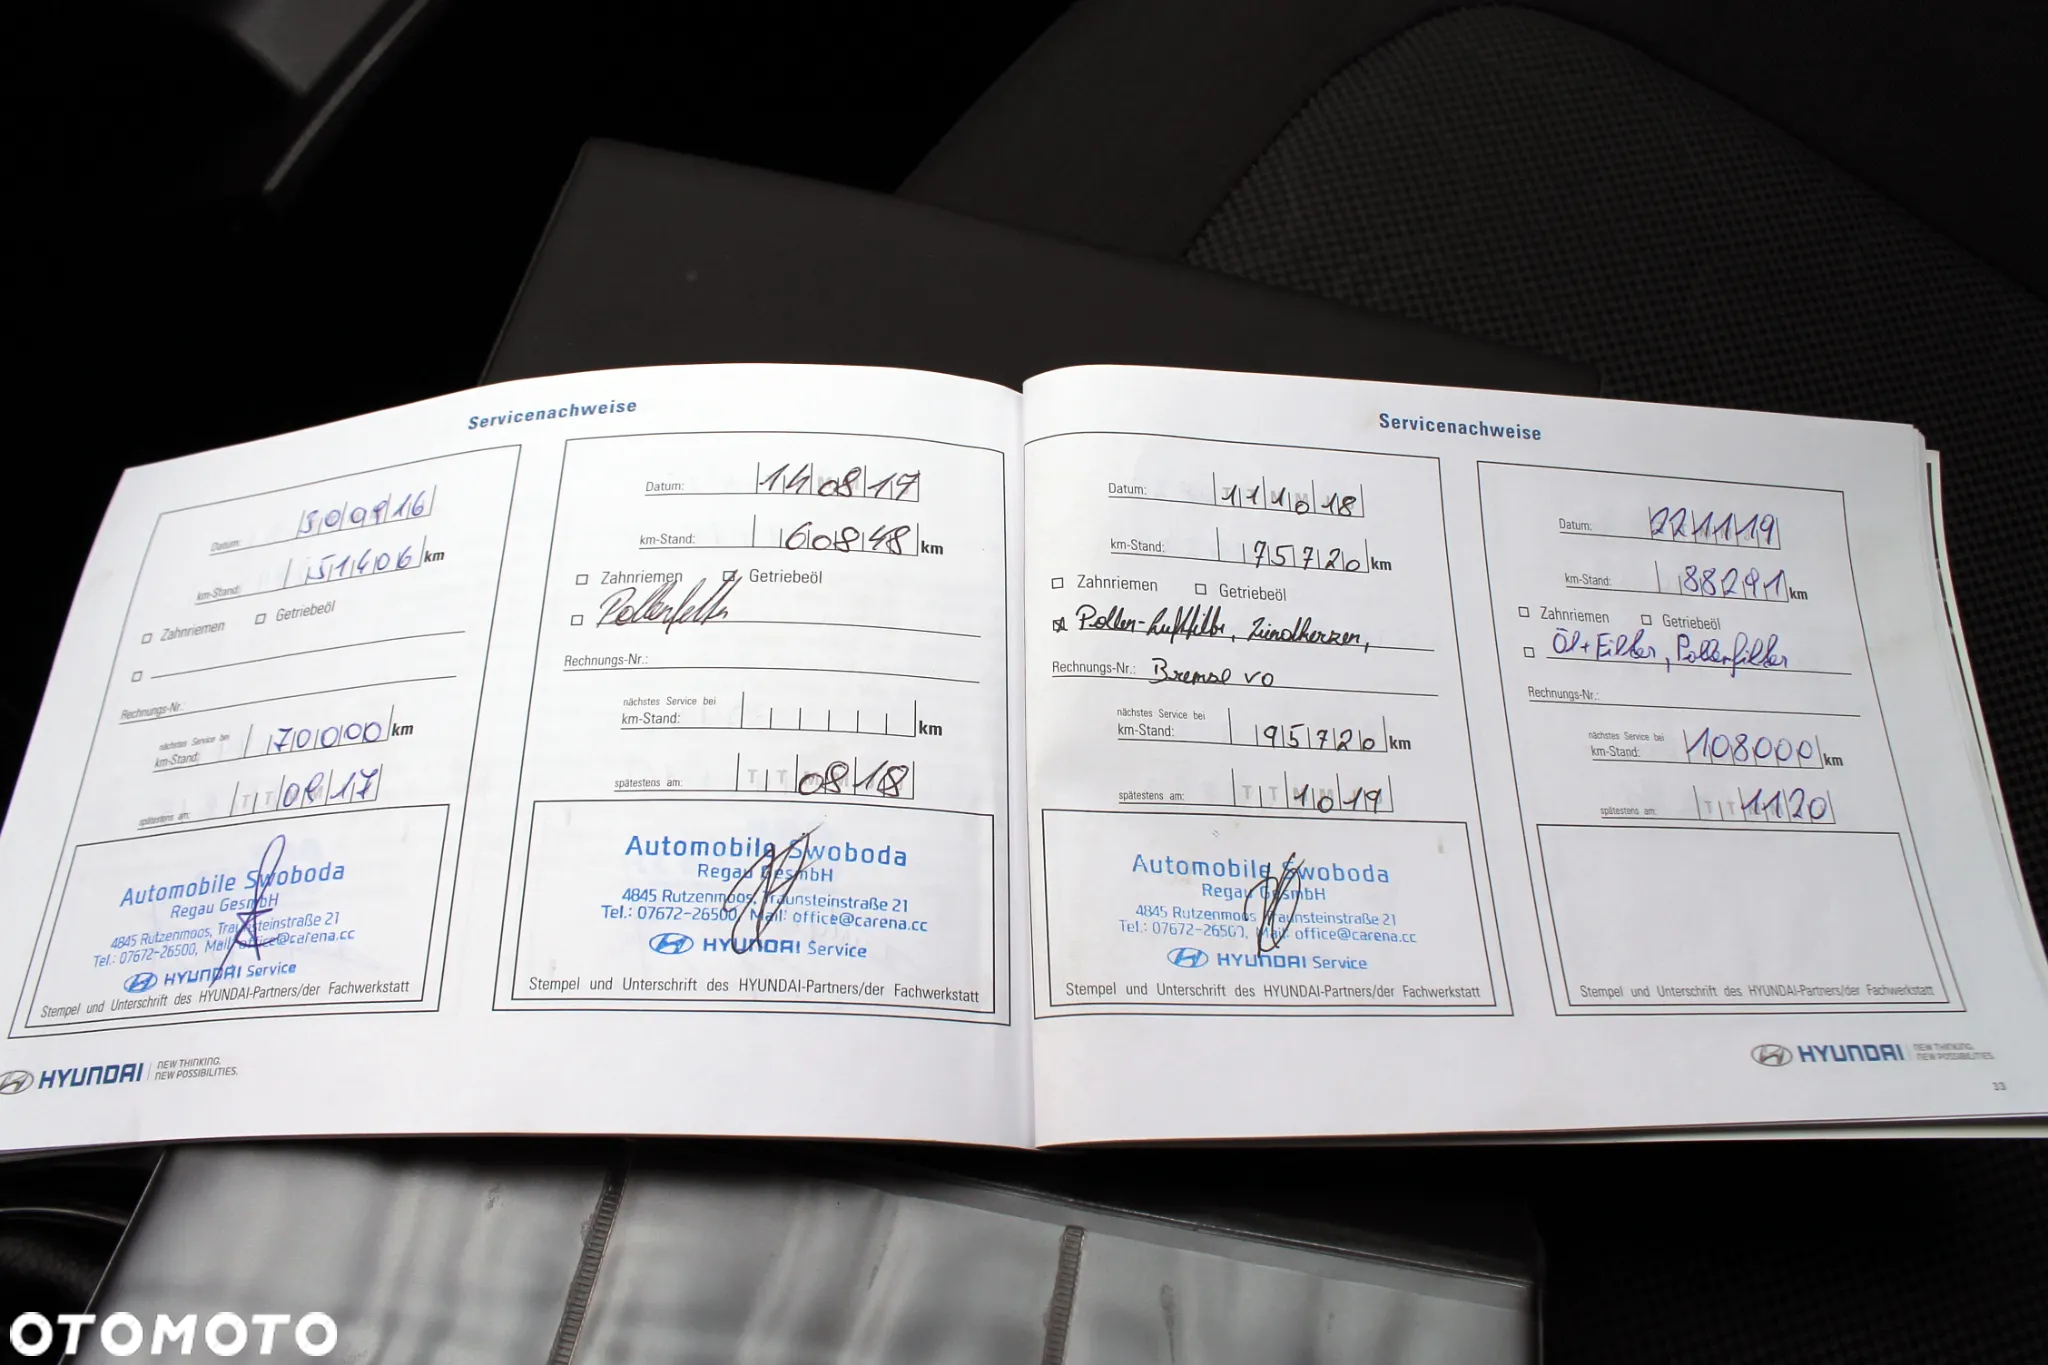 Servicenachweise
Datum: 30 09 16
km-Stand: 51406 km
Zahnriemen Getriebeöl
Rechnungs-Nr.:
nächstes Service bei
km-Stand: 70000 km
spätestens am: TT 09 17
Automobile Swoboda
Regau GesmbH
4845 Rutzenmoos, Traunsteinstraße 21
Tel.: 07672-26500, Mail: office@carena.cc
HYUNDAI Service
Stempel und Unterschrift des HYUNDAI-Partners/der Fachwerkstatt
Datum: 14 08 17
km-Stand: 60848 km
Zahnriemen Getriebeöl
Pollenfilter
Rechnungs-Nr.:
nächstes Service bei
km-Stand: km
spätestens am: TT 08 18
Automobile Swoboda
Regau GesmbH
4845 Rutzenmoos, Traunsteinstraße 21
Tel.: 07672-26500, Mail: office@carena.cc
HYUNDAI Service
Stempel und Unterschrift des HYUNDAI-Partners/der Fachwerkstatt
HYUNDAI NEW THINKING.
NEW POSSIBILITIES.
Servicenachweise
Datum: 11 10 18
km-Stand: 75720 km
Zahnriemen Getriebeöl
Pollen-Luftfilter, Zündkerzen,
Rechnungs-Nr.: Bremse vo
nächstes Service bei
km-Stand: 95720 km
spätestens am: TT 10 19
Automobile Swoboda
Regau GesmbH
4845 Rutzenmoos Traunsteinstraße 21
Tel.: 07672-26500, Mail: office@carena.cc
HYUNDAI Service
Stempel und Unterschrift des HYUNDAI-Partners/der Fachwerkstatt
Datum: 22 11 19
km-Stand: 88291 km
Zahnriemen Getriebeöl
Öl + Filter, Pollenfilter
Rechnungs-Nr.:
nächstes Service bei
km-Stand: 108000 km
spätestens am: TT 11 20
Stempel und Unterschrift des HYUNDAI-Partners/der Fachwerkstatt
HYUNDAI NEW THINKING.
NEW POSSIBILITIES.
33
OTOMOTO